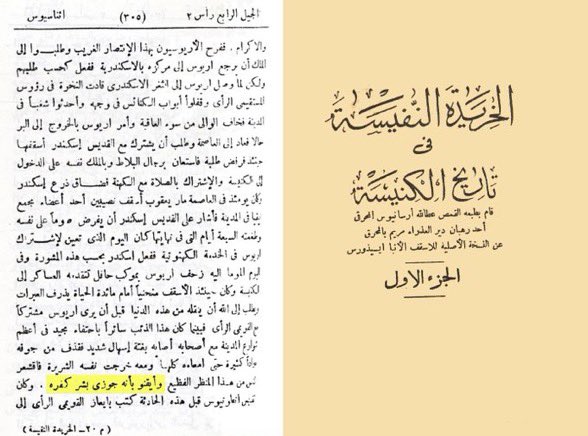 الجيل الرابع رأس ٢ (٣٠٥) اثناسيوس
والاكرام . ففرح الأريوسيون بهذا الإنتصار الغريب وطلبوا إلى
الملك أن يرجع اريوس إلى مركزه بالاسكندرية ففعل كحسب طلبهم
ولكن لما وصل اريوس إلى الثغر الاسكندرى قادت النخوة فى رؤوس
المستقيمى الرأى وقفلوا أبواب الكنائس فى وجهه وأحدثوا شغباً فى
المدينة فخاف الوالى من سوء العاقبة وأمر اريوس بالخروج إلى البر
حالا فعاد إلى العاصمة وطلب أن يشترك مع القديس إسكندر أسقفها
حينئذ فرفض طلبة فاستعان برجال البلاط وبالملك نفسه على الدخول
إلى الكنيسة والإشتراك بالصلاة مع الكهنة فضاق ذرع إسكندر
وكان يومئذ فى العاصمة مار يعقوب أسقف نصيبين أحد أعضاء مجمع
نيقية فى المدينة فأشار على القديس إسكندر أن يفرض صوماً على نفسه
وشعبه السبعة أيام التى فى نهايتها كان اليوم الذى تعين لإشتراك
اريوس فى الخدمة الكهنوتية ففعل اسكندر بحسب هذه المشورة وفى
اليوم الموما اليه زحف اريوس بموكب حافل تتقدمه العساكر إلى
الكنيسة وكان حينئذ الأسقف منحنياً أمام مائدة الحياة يذرف العبرات
وطلب إلى الله أن ينقله من هذه الدنيا قبل أن يرى اريوس مشتركاً
مع القويمى الرأى فبينما كان هذا الذئب سائراً باحتفاء مجيد فى أعظم
شوارع المدينة مع أصحابه أصابه بغتة إسهال شديد فقذف من جوفه
كثيرة حتى امعاءه كلها ومعه خرجت نفسه الشريرة فاقشعر
الناس من هذا المنظر الفظيع وأيقنو بأنه جوزى بشر كفره . وكان
قبل هذه الحادثة كتب بايعاز القويمى الرأى إلى
( م ٢٠ – الخريدة النفيسة )
الخريدة النفيسة
فى
تاريخ الكنيسة
قام بطبعه القمص عطاالله أرسانيوس المحرقى
أحد رهبان دير العذراء مريم بالمحرق
عن النسخة الأصلية للأسقف الأنبا ايسيذورس
الجزء الأول